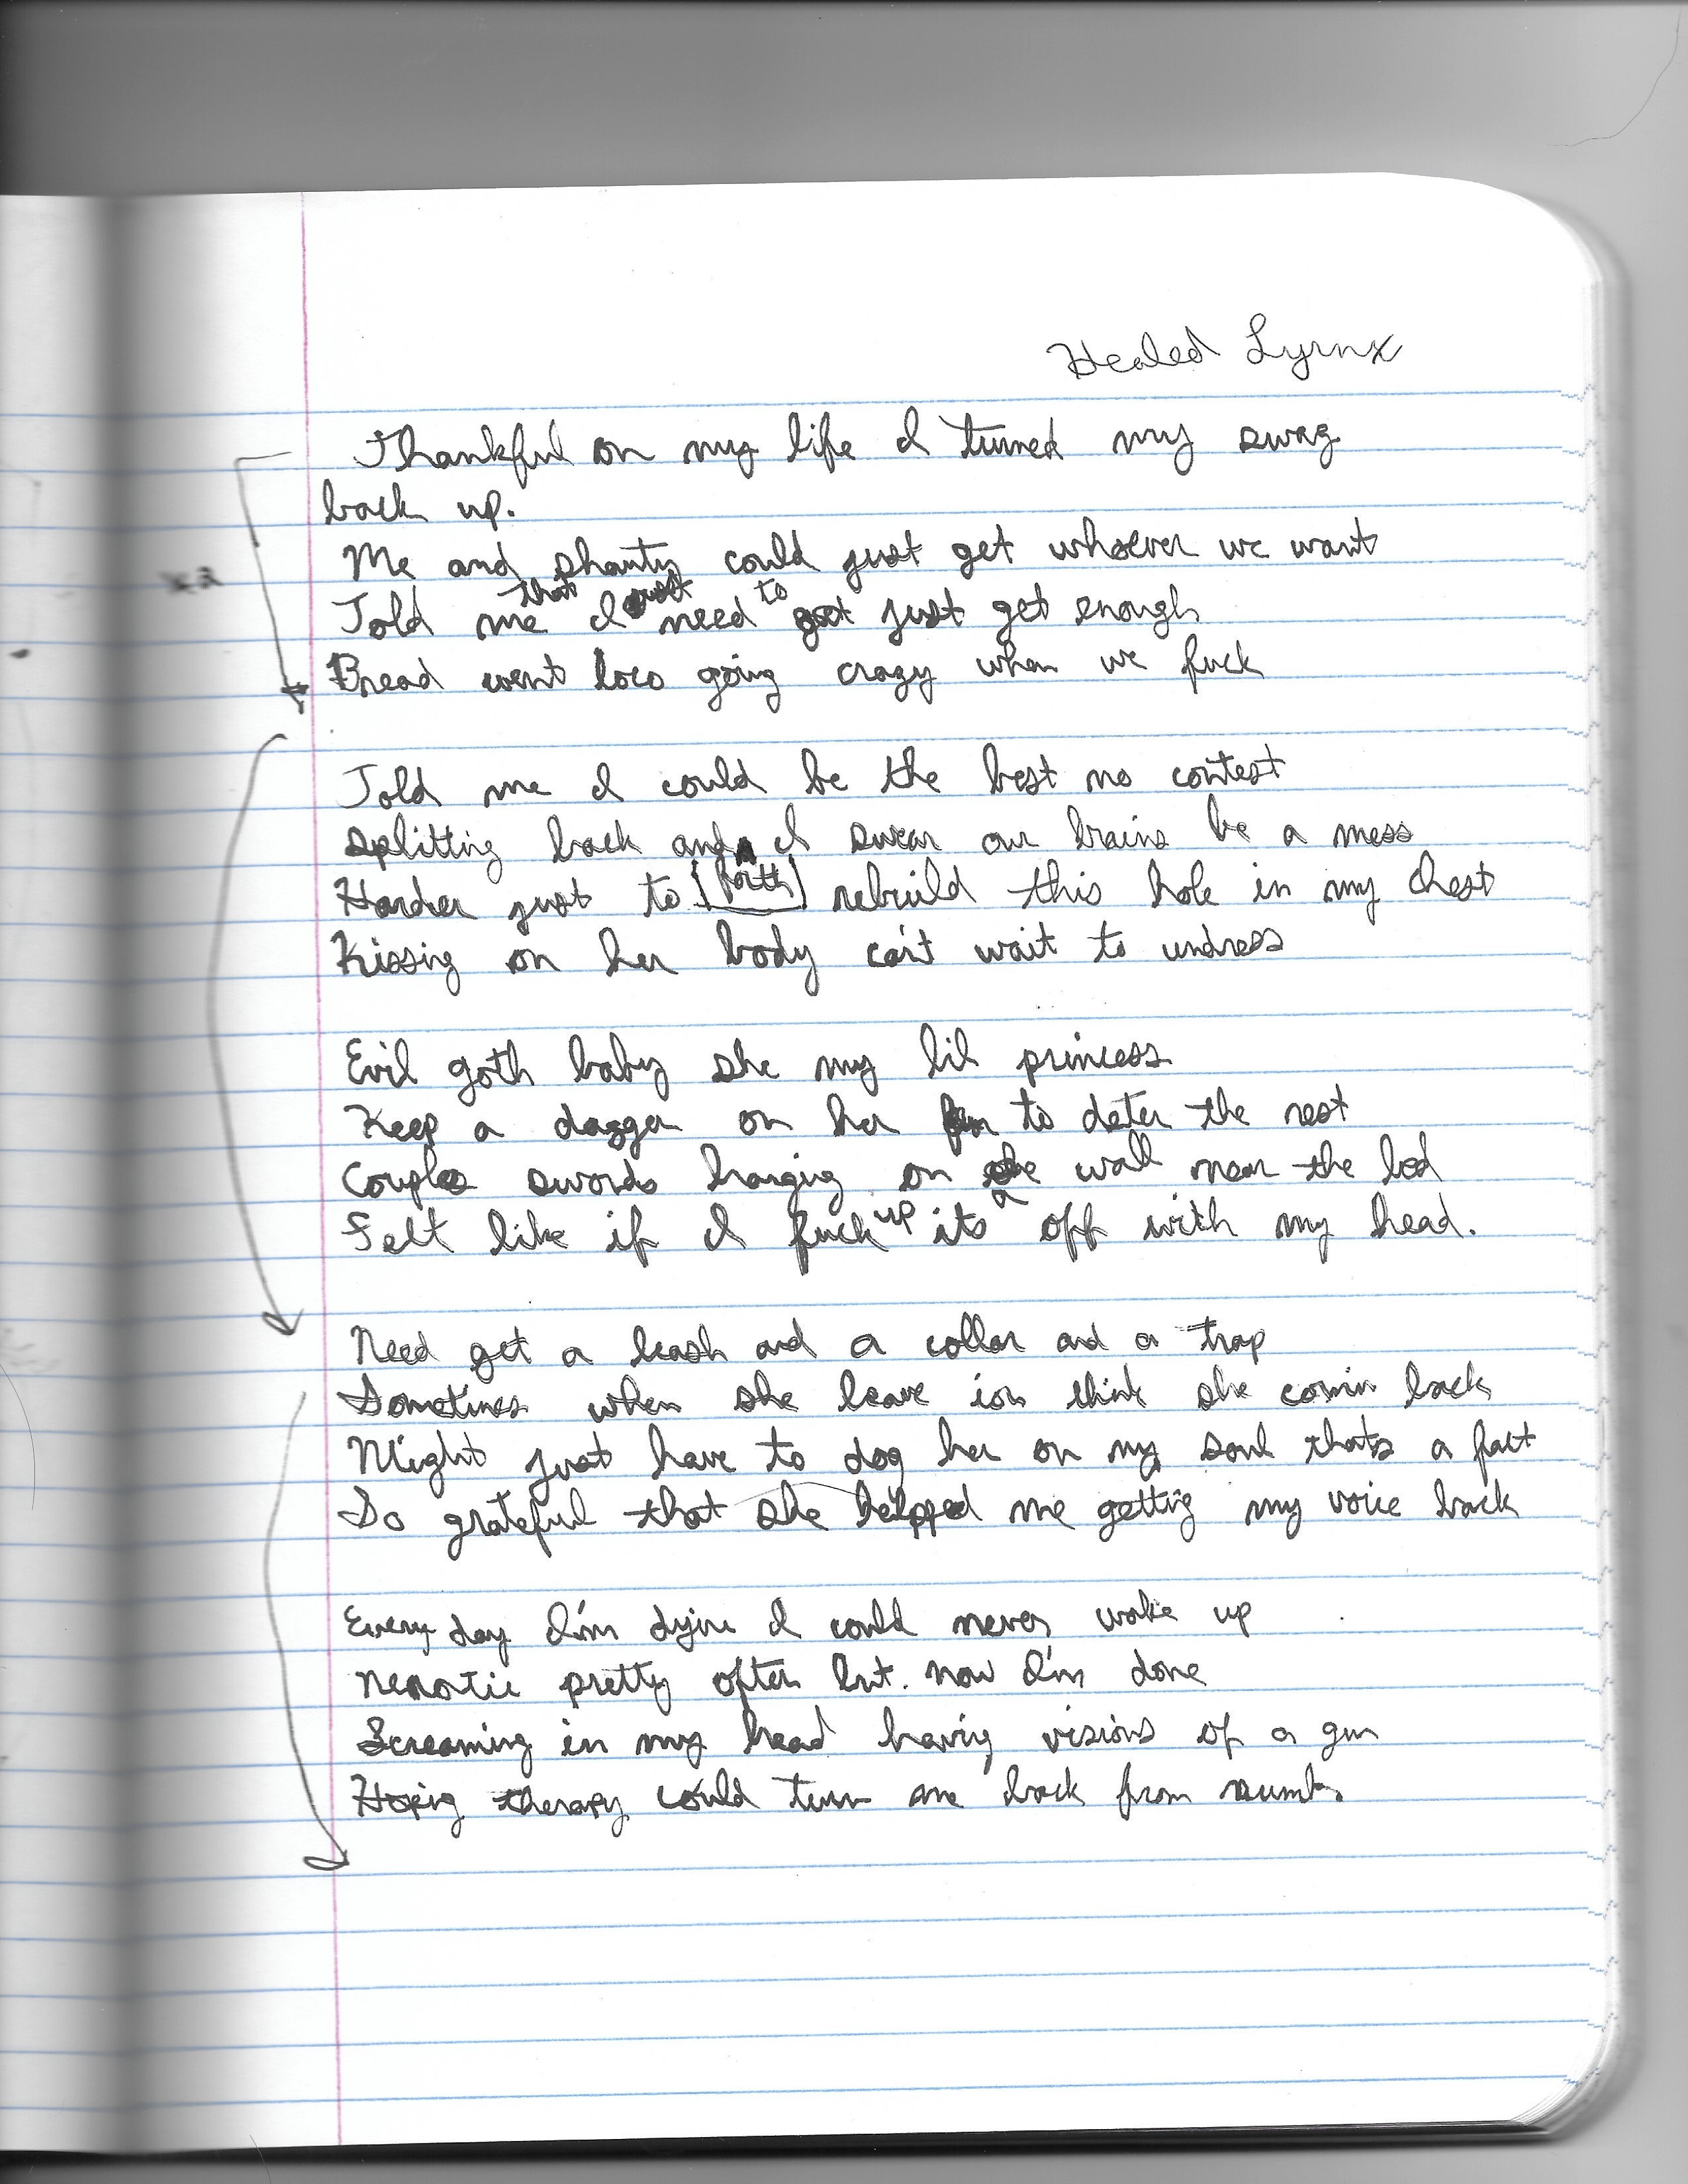 Healed Lyrnx
Thankful on my life I turned my swag
back up.
x2
Me and shanty could just get whoever we want
Told me that I need to just get enough
Bread went loco going crazy when we fuck
Told me I could be the best no contest
Splitting back and [forth] I swear our brains be a mess
Harder just to rebuild this hole in my chest
Kissing on her body can't wait to undress
Evil goth baby she my lil princess
Keep a dagger on her to deter the rest
Couple swords hanging on the wall near the bed
Felt like if I fuck up its a off with my head.
Need get a leash and a collar and a trap
Sometimes when she leave ion think she comin back
Might just have to dog her on my soul thats a fact
So grateful that she helped me getting my voice back
Every day I'm dyin I could never wake up
pretty often but now I'm done
Screaming in my head having visions of a gun
Hoping therapy could turn me back from numb.